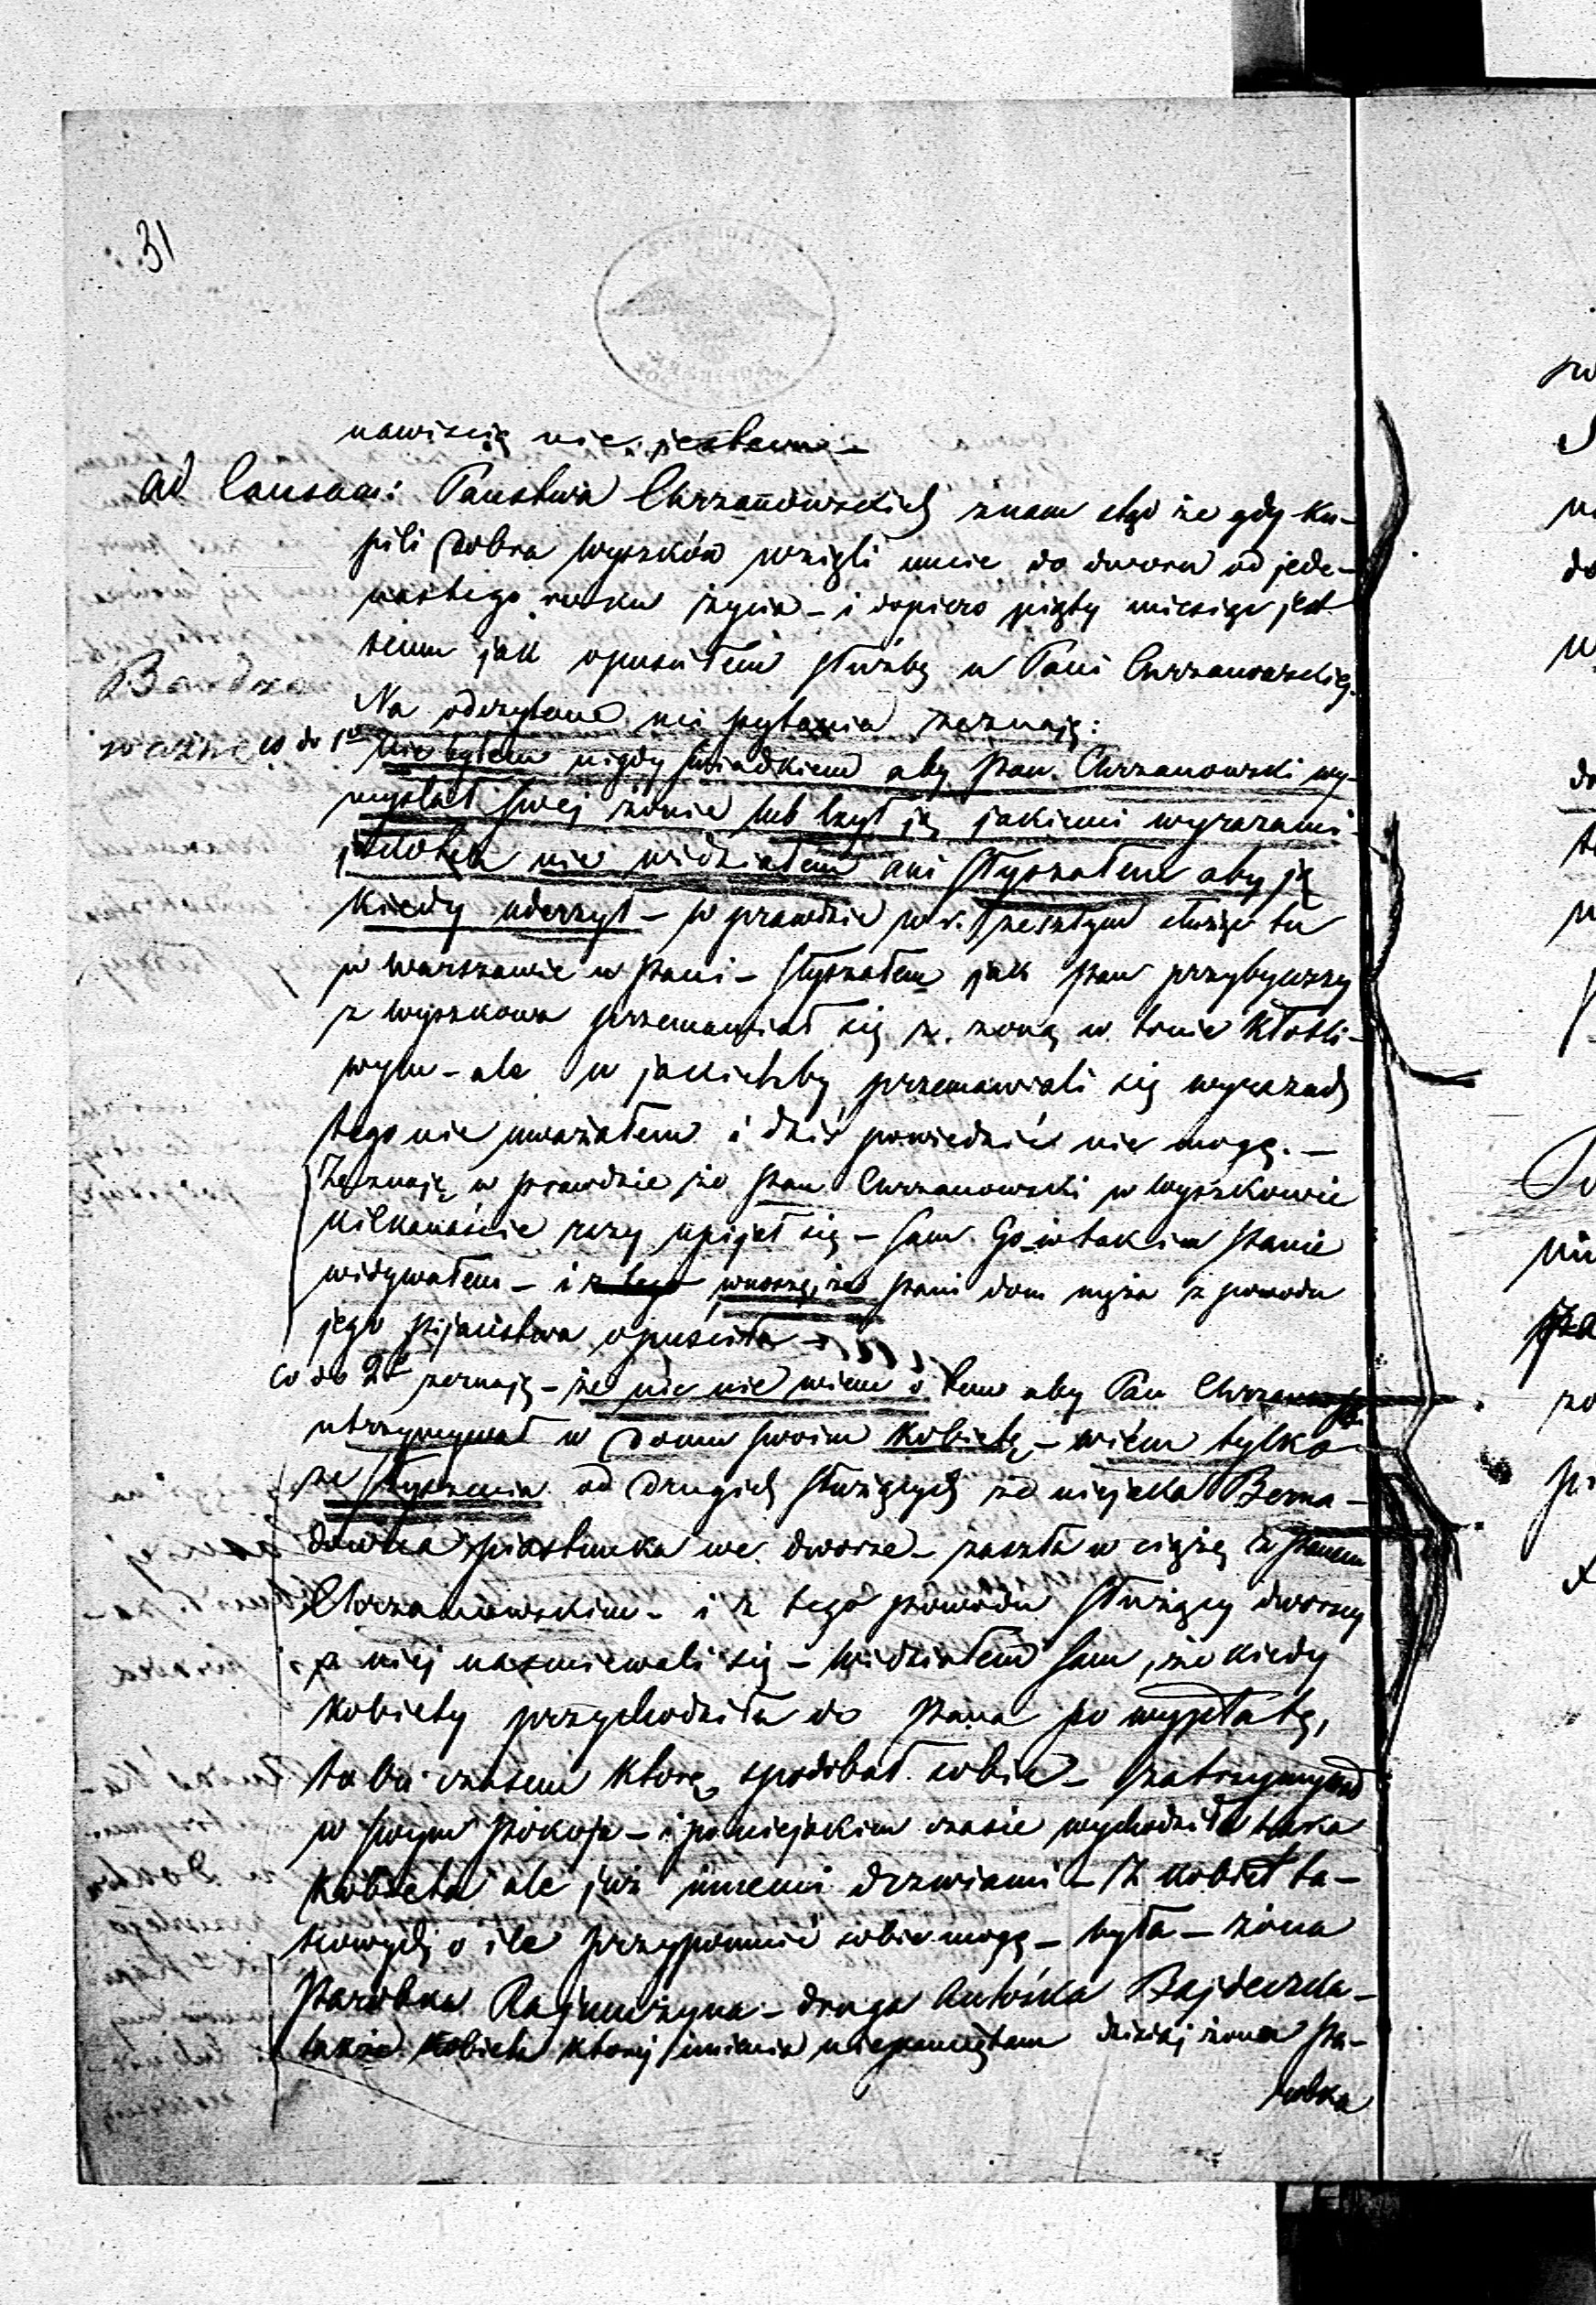 31
nawiścią nie jestem –
ad Causam: Państwa Chrzanowskich znam stąd że gdy ku-
pili dobra Wyszków wzięli mnie do dworu od jede-
nastego roku życia – i dopiero piąty miesiąc jest
jak opuściłem służbę u Pani Chrzanowskiej.
Bardzo
Na odczytane mi pytania zeznaję:
ważne co do 1o Nie byłem nigdy świadkiem aby Pan Chrzanowski wy-
myślał swej żonie lub lżył ją jakiemi wyrazami
nie widziałem ani słyszałem aby ją
kiedy uderzył – w prawdzie w r. zeszłym służąc tu
w Warszawie u Pani – słyszałem jak Pan przybywszy
z Wyszkowa przemawiał się z żoną w tonie kłótli-
wym – ale w jakichby przemawiali się wyrazach
tego nie uważałem i dziś powiedzieć nie mogę. –
Zeznaję w prawdzie że Pan Chrzanowski w Wyszkowie
kilkanaście razy upijał się – sam Go w takim stanie
widywałem – i z tego wnoszę, że Pani dom męża z powodu
jego pijaństwa opuściła –
co do 2o zeznaję – że nic nie wiem o tem aby Pan Chrzanowski
utrzymywał w domu swoim kobietę – wiem tylko
ze słyszenia od drugich służących że niejaka Berna-
downa piastunka we dworze – zaszła w ciążę z Panem
Chrzanowskim – i z tego powodu służący dworscy
z niej naśmiewali się – widziałem sam, że kiedy
kobiety przychodziły do Pana po wypłatę,
to czasem którą spodobał sobie – zatrzymywał
w swym pokoju – i po niejakim czasie wychodziła taka
kobieta ale już innemi drzwiami – Z kobiet ta-
kowych o ile przypomnieć sobie mogę – była – żona
Parobka Rajmużyna – druga Antośka Bajdeczka –
także kobieta której imienia niepamiętam dzisiaj żona Pa-
robka